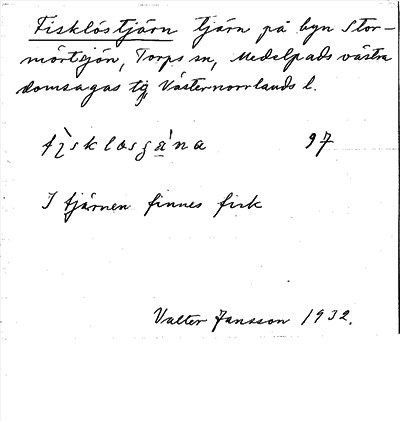 Fisklöstjärn tjärn på byn Stor-
mörtsjön, Torps sn, Medelpads västra
domsagas tg, Västernorrlands l.
fisklosgäna 97
I tjärnen finnes fisk
Valter Jansson 1932.